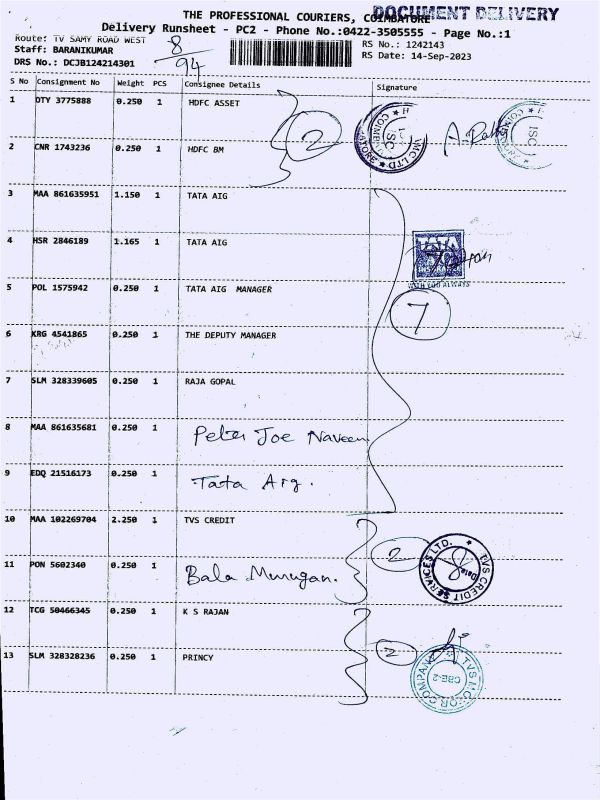 THE PROFESSIONAL COURIERS, COIMBATORE
DOCUMENT DELIVERY
Delivery Runsheet - PC2 - Phone No.:0422-3505555 - Page No.:1
Route: TV SAMY ROAD WEST
8
RS No.: 1242143
Staff: BARANIKUMAR
RS Date: 14-Sep-2023
DRS No.: DCJB124214301
94
S No Consignment No Weight PCS Consignee Details Signature
1 DTY 3775888 0.250 1 HDFC ASSET
2
2 CNR 1743236 0.250 1 HDFC BM
3 MAA 861635951 1.150 1 TATA AIG
4 HSR 2846189 1.165 1 TATA AIG
TATA
WITH YOU ALWAYS
5 POL 1575942 0.250 1 TATA AIG MANAGER
7
6 KRG 4541865 0.250 1 THE DEPUTY MANAGER
7 SLM 328339605 0.250 1 RAJA GOPAL
8 MAA 861635681 0.250 1 Peter Joe Naveen
9 EDQ 21516173 0.250 1 Tata Arg.
10 MAA 102269704 2.250 1 TVS CREDIT
2
TVS CREDIT SERVICES LTD.
11 PON 5602340 0.250 1 Bala Murugan.
12 TCG 50466345 0.250 1 K S RAJAN
13 SLM 328328236 0.250 1 PRINCY
2
TVS MOTOR COMPANY
CBE-2